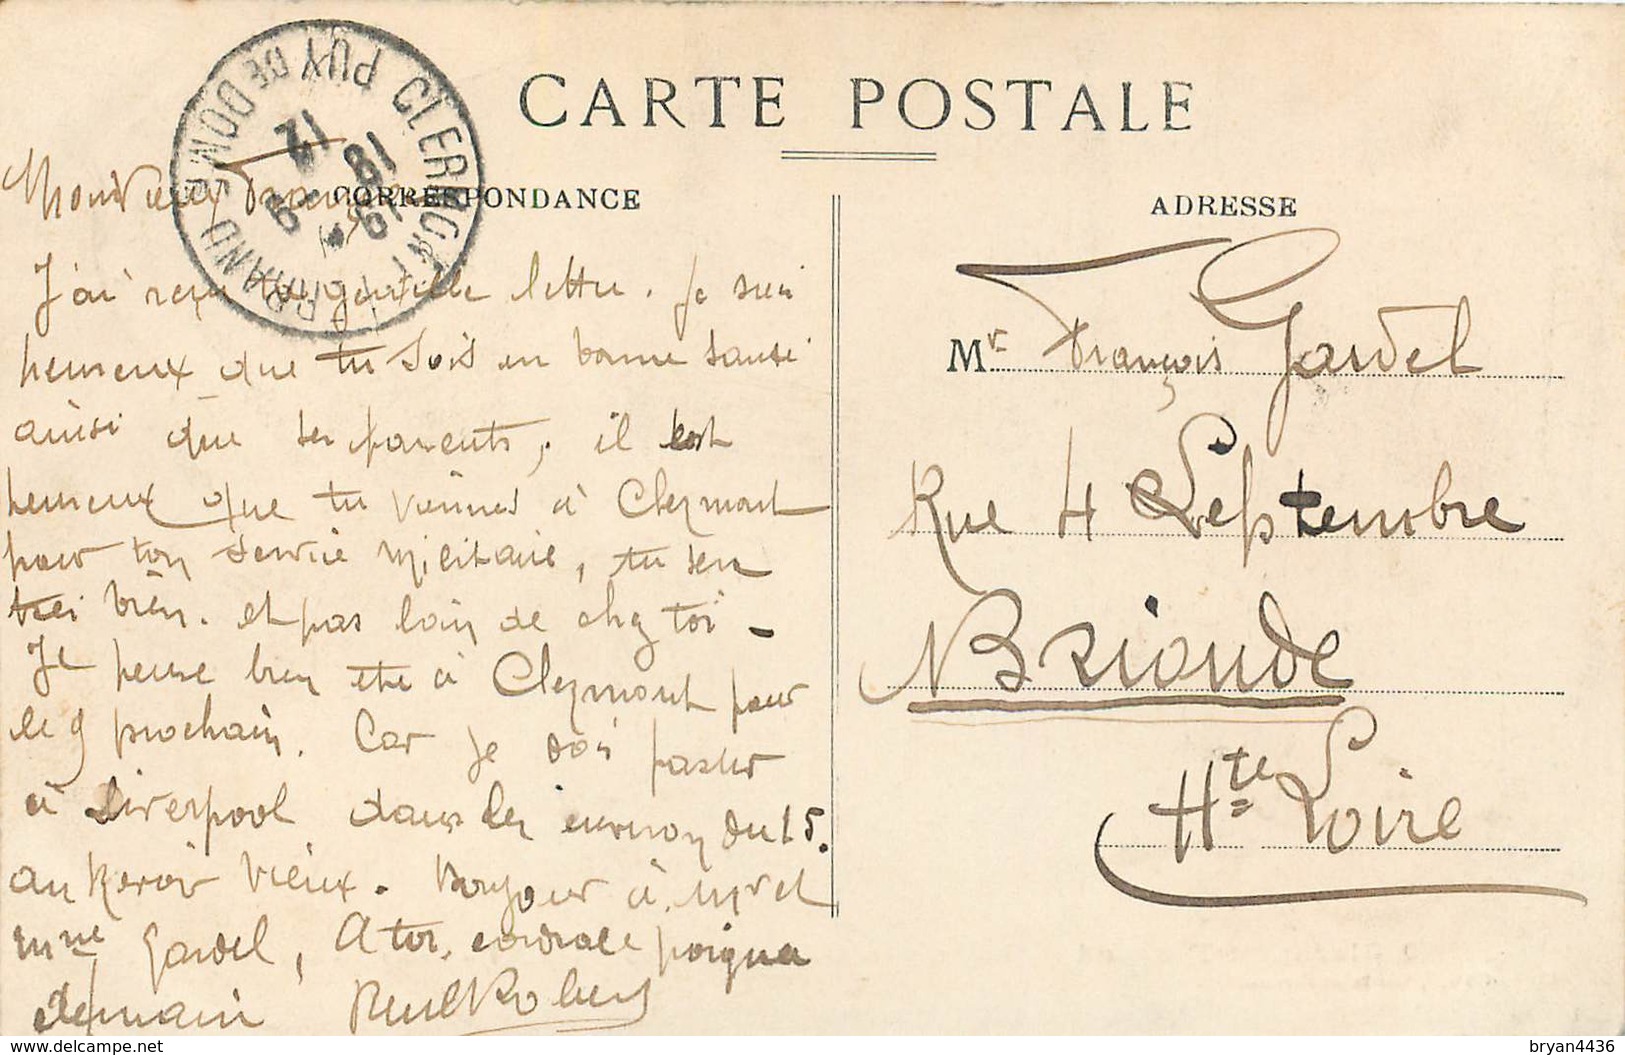 CARTE POSTALE
CLERMONT-FERRAND PUY DE DOME
12
18 - 9
19
CORRESPONDANCE
Mon Vieux François
J'ai reçu ta gentille lettre. Je suis
heureux que tu sois en bonne santé
ainsi que tes parents, il est
heureux que tu viennes à Clermont
pour ton service militaire, tu seras
très bien. et pas loin de chez toi -
Je pense bien être à Clermont pour
le 9 prochain. Car je dois passer
à Liverpool dans les environ du 15.
au revoir Vieux. Bonjour à Mr et
Mme Gardel, A toi, cordiale poignée
demain Robert
ADRESSE
Mr François Gardel
Rue 4 Septembre
Brioude
Hte Loire
www.delcampe.net
bryan4436